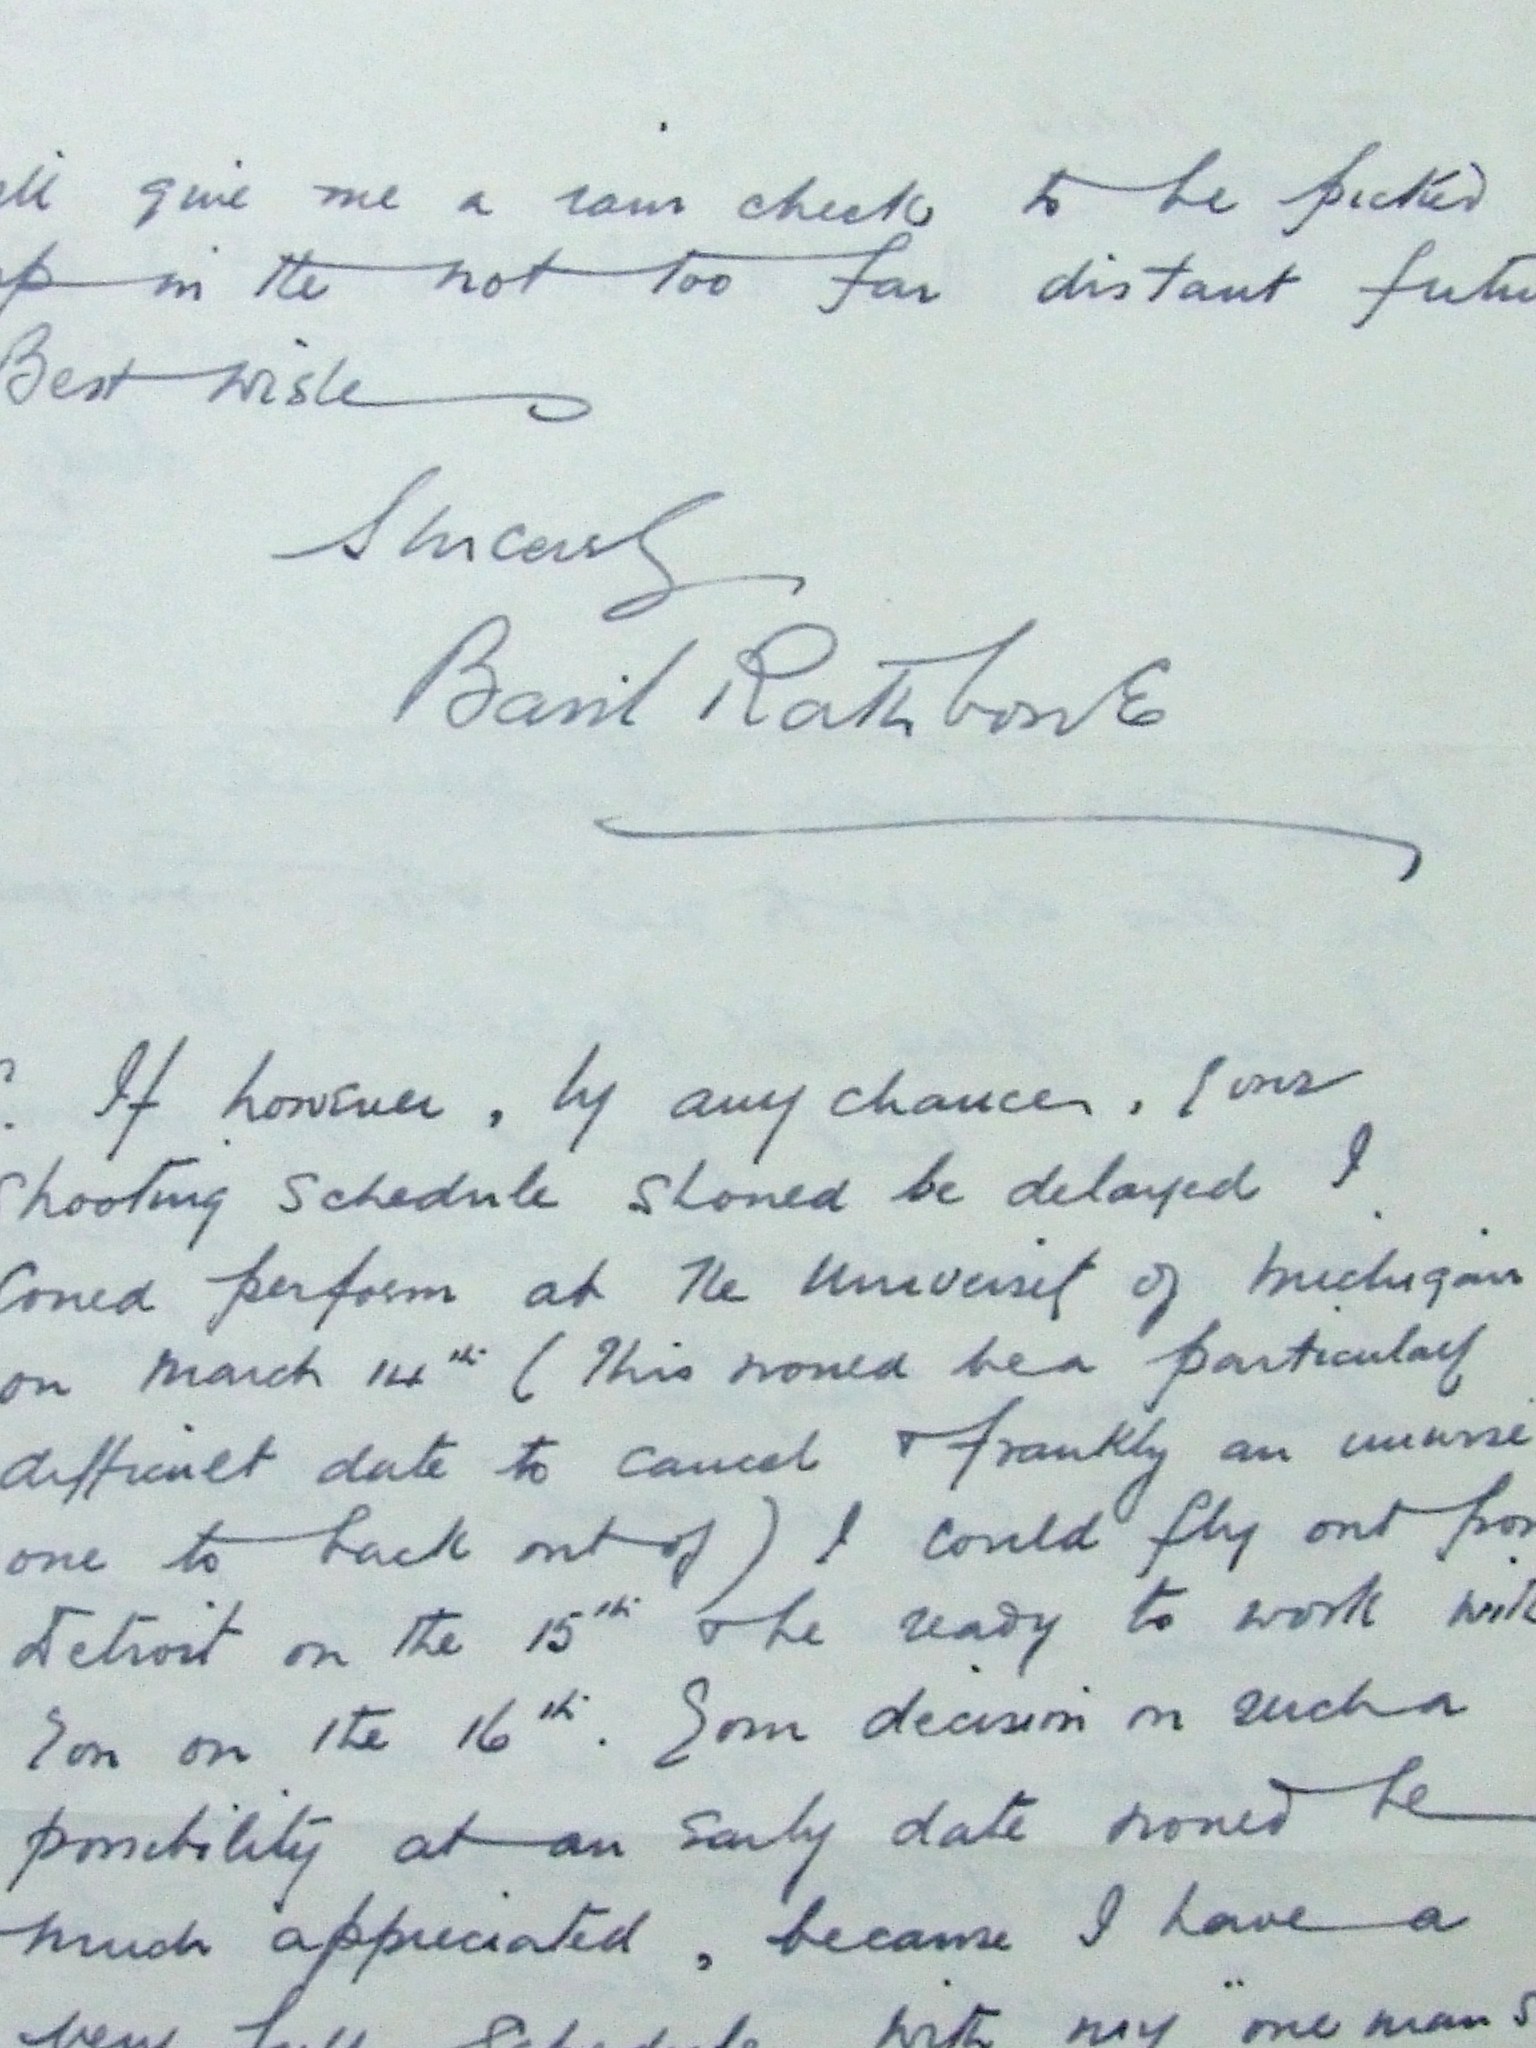 give me a rain check to be picked
in the not too far distant
Best wishes
Sincerely
Basil Rathbone
If however, by any chance, your
shooting schedule should be delayed I
could perform at the University of Michigan
on March 14th (This would be a particularly
difficult date to cancel & frankly an unwise
one to back out of) I could fly out from
Detroit on the 15th & be ready to work with
you on the 16th. Your decision on such a
possibility at an early date would be
much appreciated, because I have a
very full schedule with my "one man